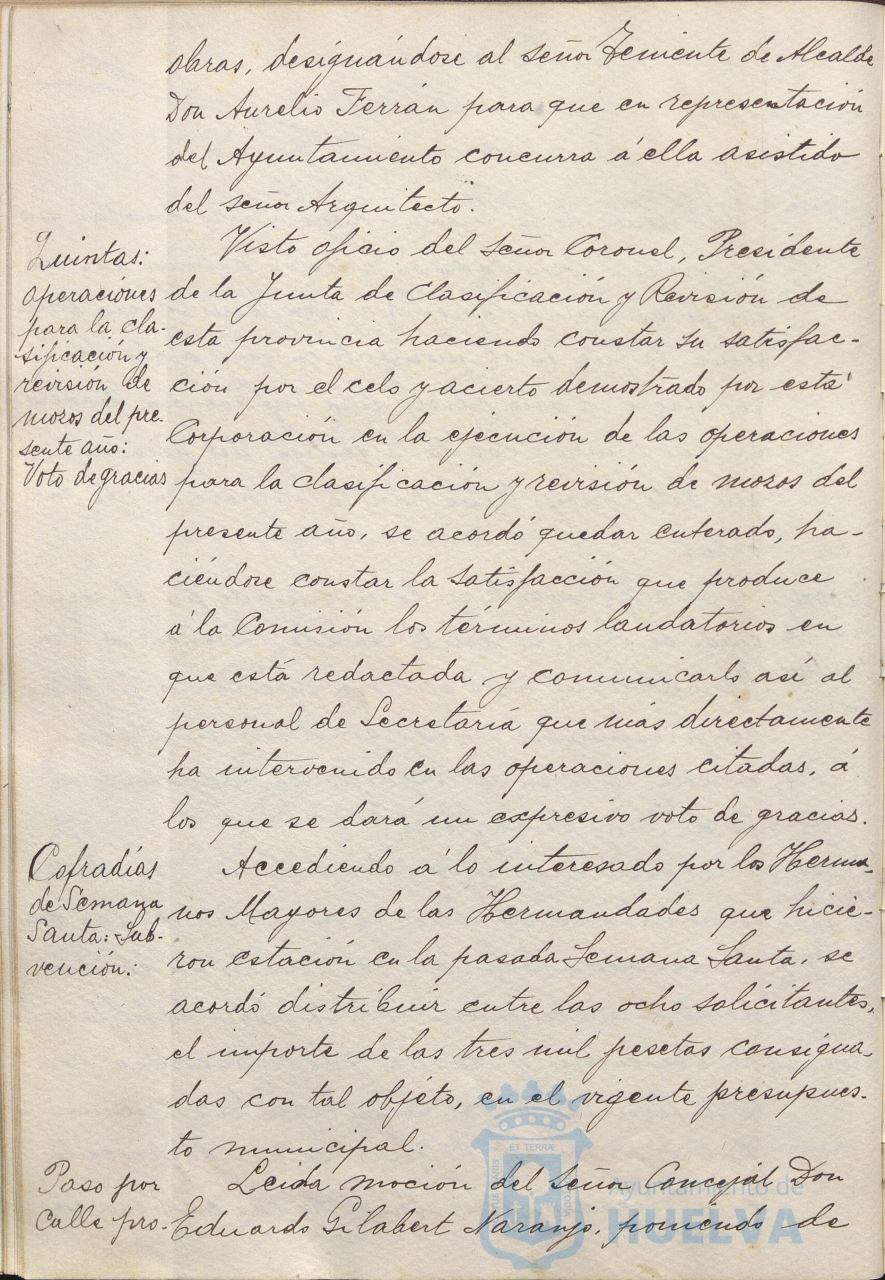 obras, designándose al señor Teniente de Alcalde
Don Aurelio Ferrán para que en representación
del Ayuntamiento concurra á ella asistido
del señor Arquitecto.
Quintas:
operaciones
para la cla-
sificación y
revisión de
mozos del pre-
sente año:
Voto de gracias
Visto oficio del señor Coronel, Presidente
de la Junta de Clasificación y Revisión de
esta provincia haciendo constar su satisfac-
ción por el celo y acierto demostrado por esta
Corporación en la ejecución de las operaciones
para la clasificación y revisión de mozos del
presente año, se acordó quedar enterado, ha-
ciéndose constar la satisfacción que produce
á la Comisión los términos laudatorios en
que está redactada y comunicarlo así al
personal de Secretaría que más directamente
ha intervenido en las operaciones citadas, á
los que se dará un expresivo voto de gracias.
Cofradías
de Semana
Santa: Sub-
vención:
Accediendo á lo interesado por los Herma-
nos Mayores de las Hermandades que hicie-
ron estación en la pasada Semana Santa, se
acordó distribuir entre las ocho solicitantes,
el importe de las tres mil pesetas consigna-
das con tal objéto, en el vigente presupues-
to municipal.
Paso por
calle pro-
Leida moción del señor Concejal Don
Eduardo Gilabert Naranjo, poniendo de
ET TERRAE
Ayuntamiento de
HUELVA